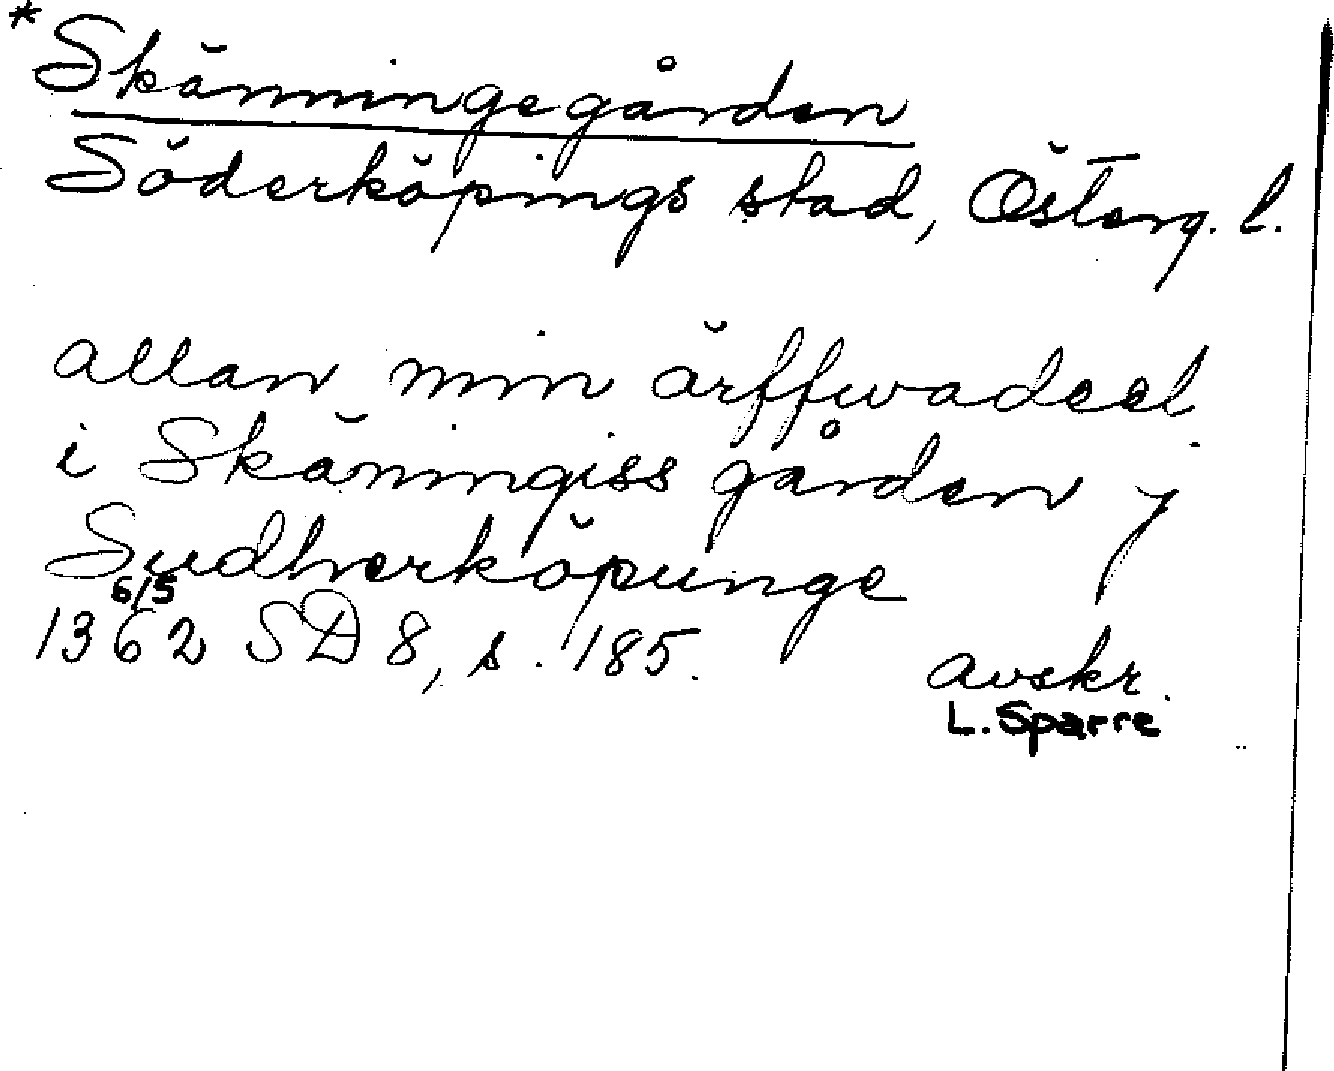 *Skänningegården
Söderköpings stad, Österg. l.
allan min ärffwadeel
i Skäningiss gården j
Sudherköpunge
6/5
1362 SD 8, s. 185.
avskr.
L. Sparre